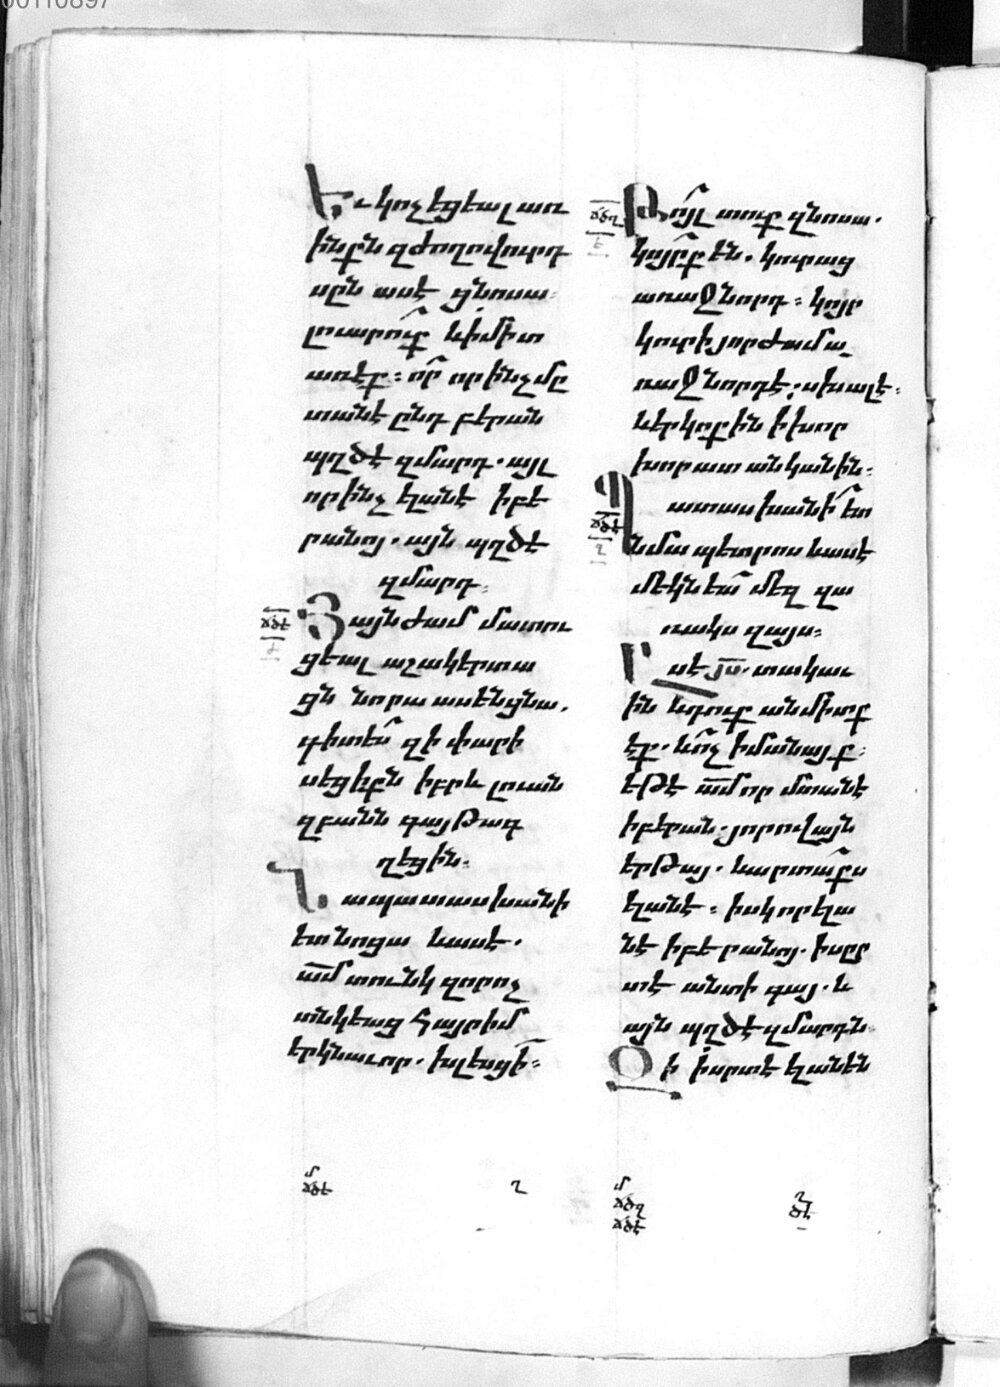 00110897
Եւ կոչեցեալ առ
ինքն զժողովուրդ
սըն ասէ ցնոսա։
լուարուք և ի միտ
առէք։ ոչ որ ինչ մը
տանէ ընդ բերան
պղծէ զմարդ. այլ
որ ինչ ելանէ ի բե
րանոյ. այն պղծէ
զմարդ։
ճծէ
Յայնժամ մատու
ցեալ աշակերտա
ցն նորա ասեն ցնա.
գիտես զի փարի
սեցիքն իբրև լուան
զբանն գայթագ
ղեցին։
Նա պատասխանի
ետ նոցա և ասէ.
ամ տունկ զոր ոչ
տնկեաց հայր իմ
երկնաւոր. խլեսցի։
մ
ճծէ
ղ
ճծզ
ե
Թոյլ տուք զնոսա.
կոյրք են. կուրաց
առաջնորդ։ կոյր
կուրի յորժամ ա
ռաջնորդէ. սխալէ։
և երկոքին ի խոր
խորատ անկանին։
ճծէ
ղ
Պատասխանի ետ
նմա պետրոս և ասէ
մեկնեա մեզ զա
ռակս զայս։
Եւ ասէ յս. տակաւ
ին և դուք անմիտք
էք. և ոչ իմանայք։
եթէ ամ որ մտանէ
ի բերան. յորովայն
երթայ. և արտաքս
ելանէ։ իսկ որ ելա
նէ ի բերանոյ. ի սըր
տէ անտի գայ. և
այն պղծէ զմարդն։
Զի ի սրտէ ելանեն
մ
ճծզ
ճծէ
ղ
ծէ